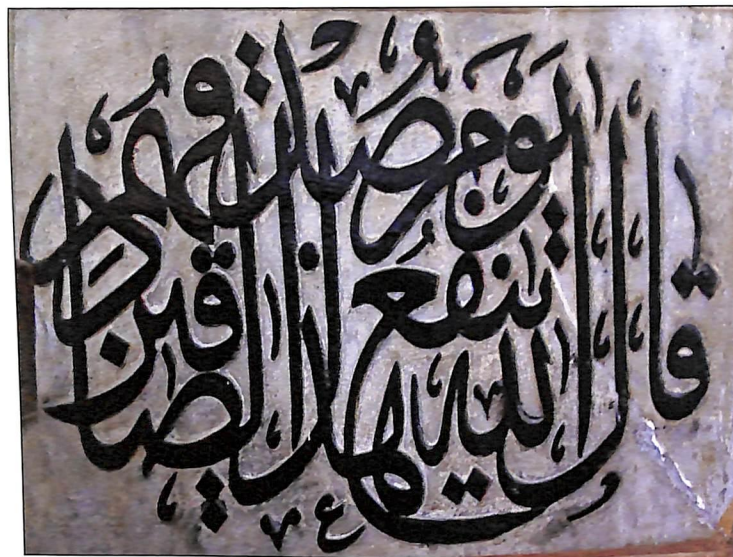 قال الله هذا يوم ينفع الصادقين صدقهم